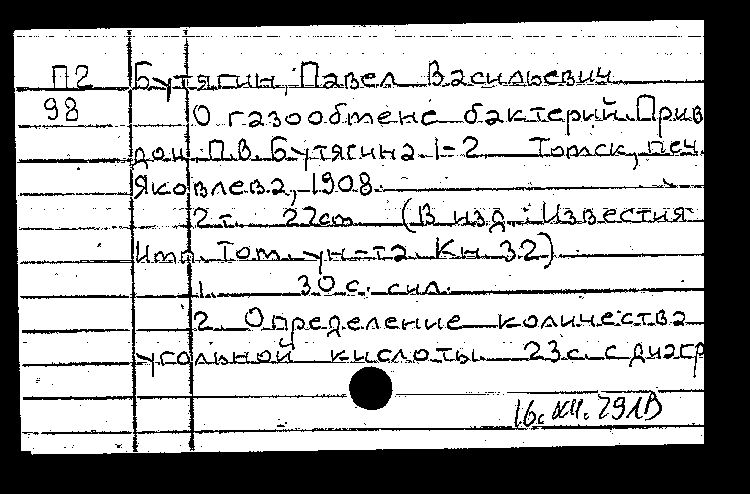 П2 Бутягин, Павел Васильевич
98 О газообмене бактерий. Прив
доц. П.В. Бутягина. 1-2. Томск, печ.
Яковлева, 1908.
2 т. 22cm (В изд.: Известия
Имп. Том. ун-та. Кн. 32)
1. 30 с. сил.
2. Определение количества
угольной кислоты. 23 с. с диагр
16. XII. 29